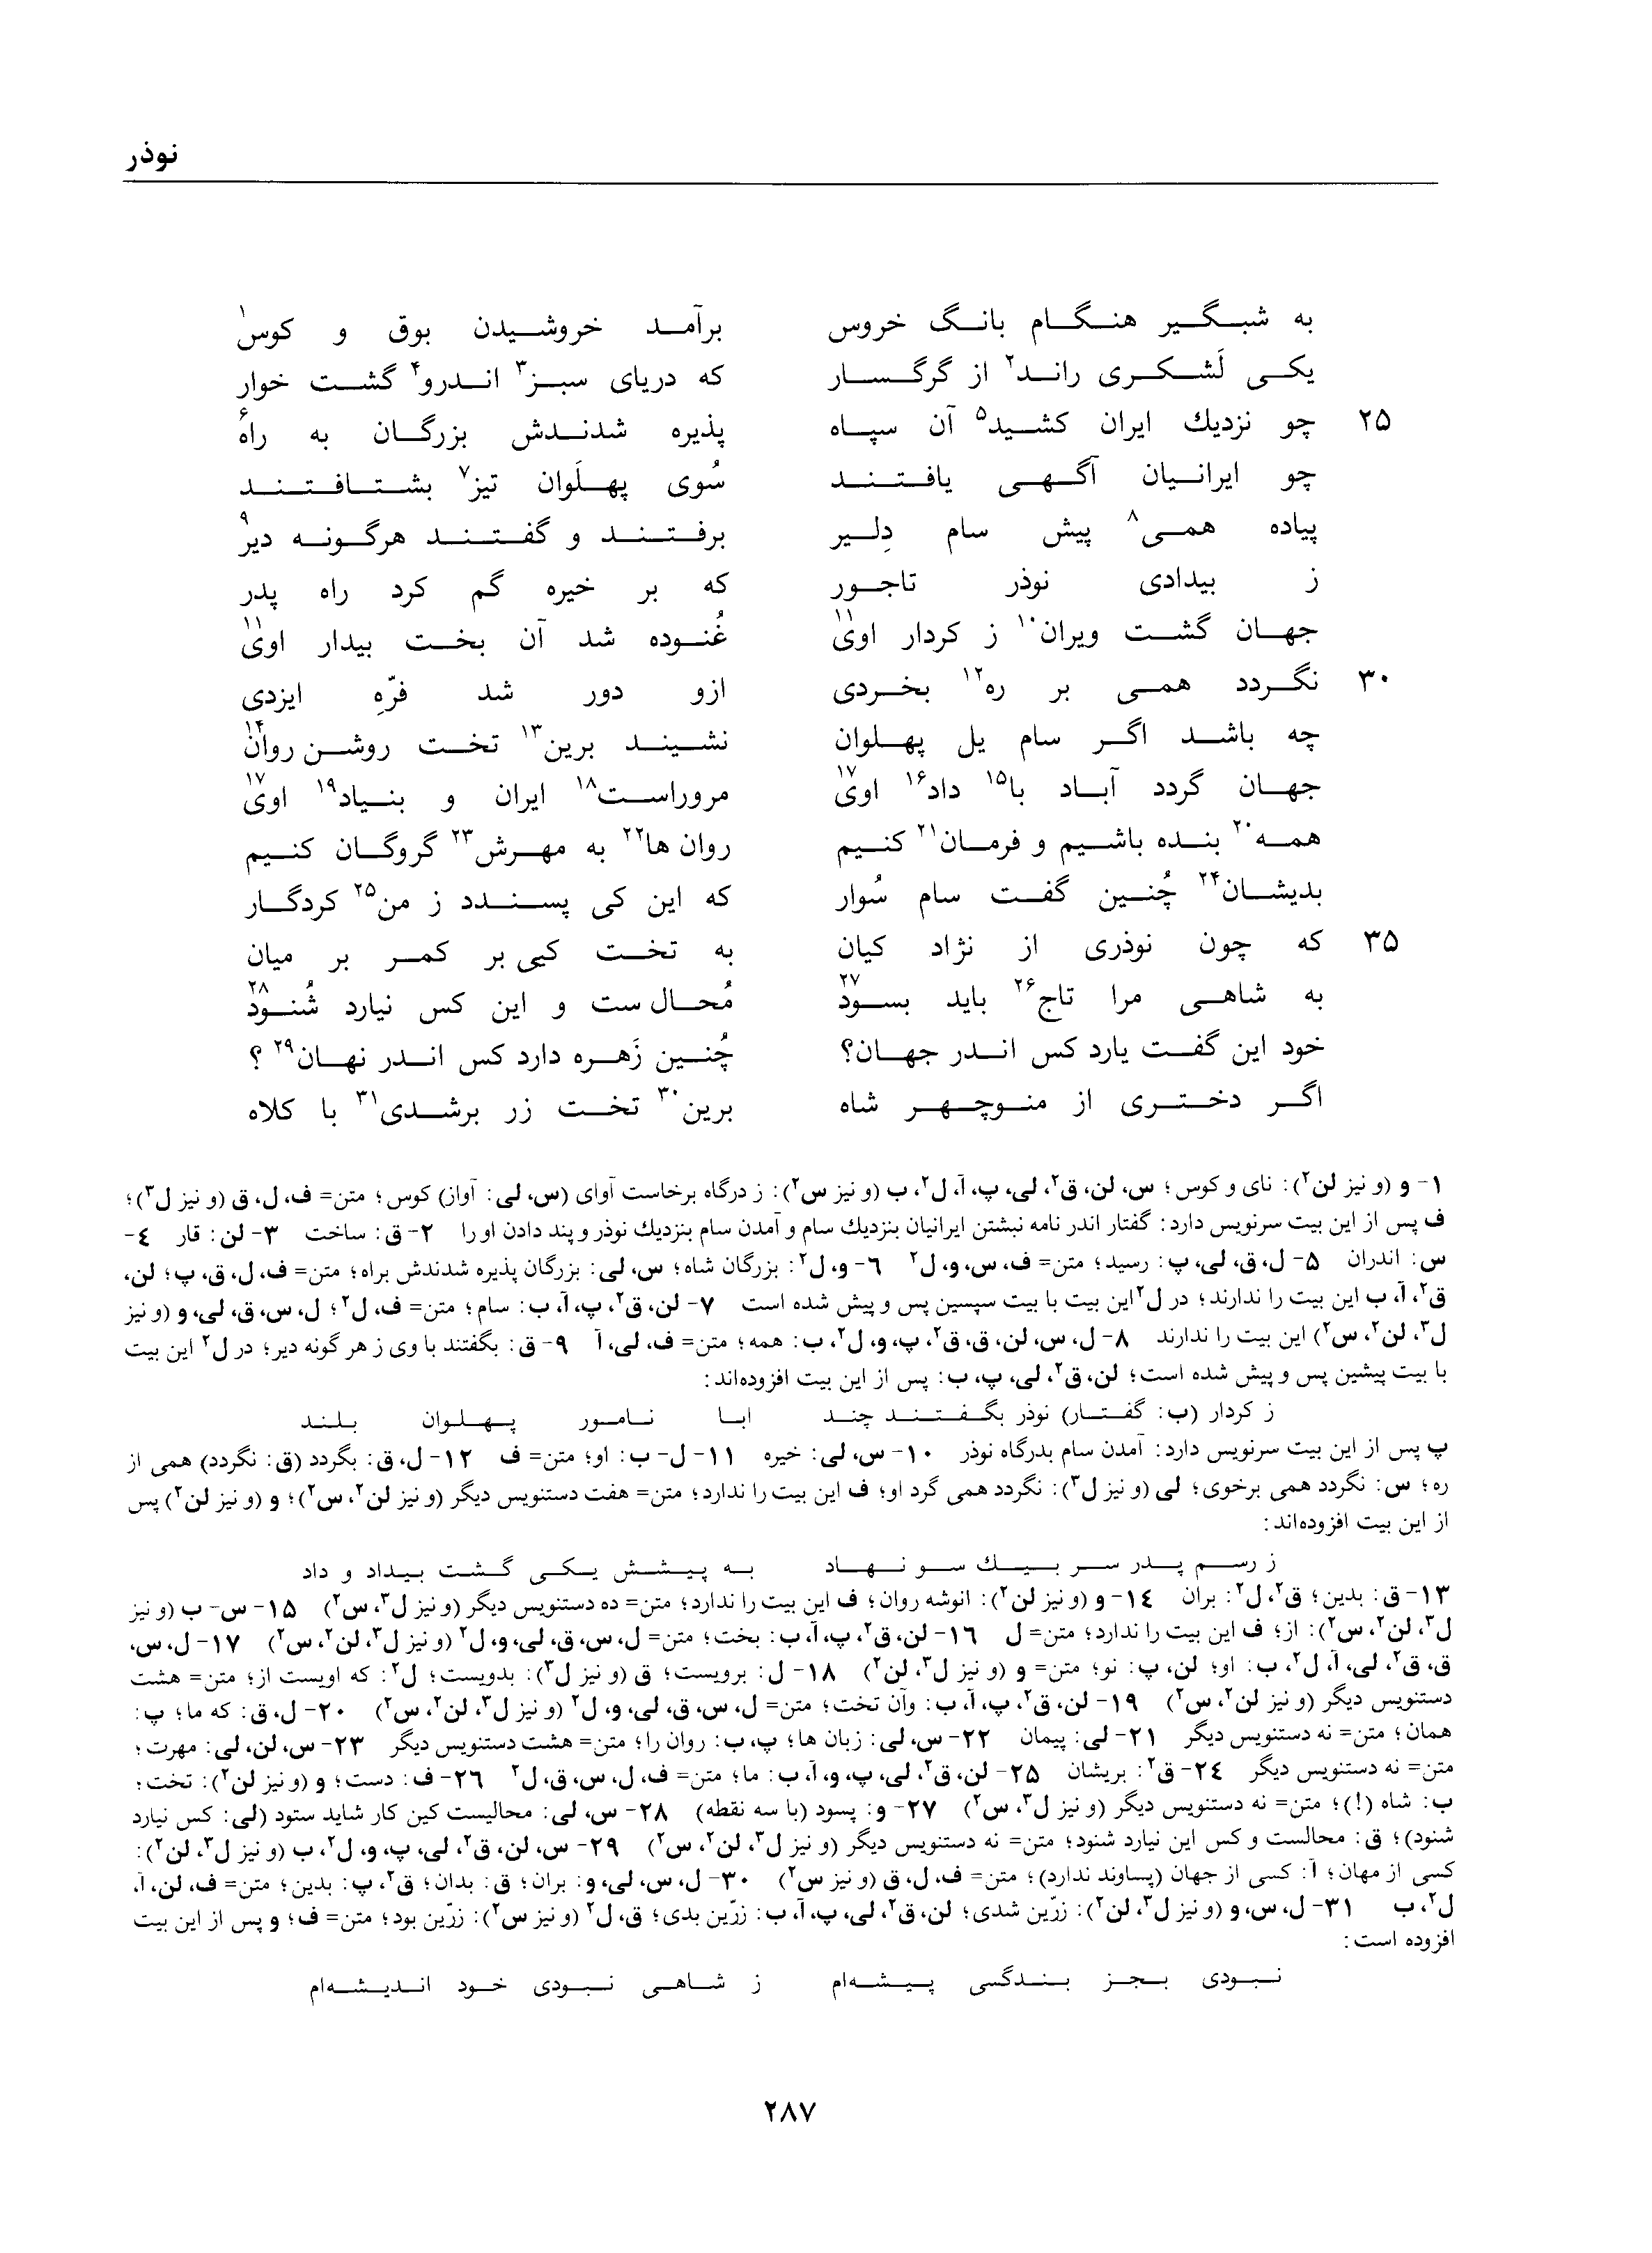 نوذر
به شبگیر هنگام بانگ خروس برآمد خروشیدن بوق و کوس۱
یکی لَشکری راند۲ از گرگسار که دریای سبز۳ اندرو۴ گشت خوار
۲۵ چو نزدیك ایران کشید۵ آن سپاه پذیره شدندش بزرگان به راه۶
چو ایرانیان آگهی یافتند سُوی پهلَوان تیز۷ بشتافتند
پیاده همی۸ پیش سام دِلیر برفتند و گفتند هرگونه دیر۹
ز بیدادی نوذر تاجور که بر خیره گم کرد راه پدر
جهان گشت ویران۱۰ ز کردار اوی۱۱ غُنوده شد آن بخت بیدار اوی۱۱
۳۰ نگردد همی بر ره۱۲ بخردی ازو دور شد فرّهِ ایزدی
چه باشد اگر سام یل پهلوان نشیند برین۱۳ تخت روشن روان۱۴
جهان گردد آباد با۱۵ داد۱۶ اوی۱۷ مروراست۱۸ ایران و بنیاد۱۹ اوی۱۷
همه۲۰ بنده باشیم و فرمان۲۱ کنیم روان ها۲۲ به مهرش۲۳ گروگان کنیم
بدیشان۲۴ چُنین گفت سام سُوار که این کی پسندد ز من۲۵ کردگار
۳۵ که چون نوذری از نژاد کیان به تخت کیی بر کمر بر میان
به شاهی مرا تاج۲۶ باید بسود۲۷ مُحال ست و این کس نیارد شُنود۲۸
خود این گفت یارد کس اندر جهان؟ چُنین زَهره دارد کس اندر نهان۲۹ ؟
اگر دختری از منوچهر شاه برین۳۰ تخت زر برشدی۳۱ با کلاه
۱- و (و نیز لن۲): نای و کوس؛ س، لن، ق۲، لی، پ، آ، ل۲، ب (و نیز س۲): ز درگاه برخاست آوای (س، لی: آواز) کوس؛ متن= ف، ل، ق (و نیز ل۳)؛
ف پس از این بیت سرنویس دارد: گفتار اندر نامه نبشتن ایرانیان بنزدیك سام و آمدن سام بنزدیك نوذر و پند دادن او را ۲- ق: ساخت ۳- لن: قار ۴-
س: اندران ۵- ل، ق، لی، پ: رسید؛ متن= ف، س، و، ل۲ ۶- و، ل۲: بزرگان شاه؛ س، لی: بزرگان پذیره شدندش براه؛ متن= ف، ل، ق، پ؛ لن،
ق۲، آ، ب این بیت را ندارند؛ در ل۲ این بیت با بیت سپسین پس و پیش شده است ۷- لن، ق۲، پ، آ، ب: سام؛ متن= ف، ل۲؛ ل، س، ق، لی، و (و نیز
ل۳، لن۲، س۲) این بیت را ندارند ۸- ل، س، لن، ق، ق۲، پ، و، ل۲، ب: همه؛ متن= ف، لی، آ ۹- ق: بگفتند با وی ز هر گونه دیر؛ در ل۲ این بیت
با بیت پیشین پس و پیش شده است؛ لن، ق۲، لی، پ، ب: پس از این بیت افزوده‌اند:
ز کردار (ب: گفتار) نوذر بگفتند چند ابا نامور پهلوان بلند
پ پس از این بیت سرنویس دارد: آمدن سام بدرگاه نوذر ۱۰- س، لی: خیره ۱۱- ل- ب: او؛ متن= ف ۱۲- ل، ق: بگردد (ق: نگردد) همی از
ره؛ س: نگردد همی برخوی؛ لی (و نیز ل۳): نگردد همی گرد او؛ ف این بیت را ندارد؛ متن= هفت دستنویس دیگر (و نیز لن۲، س۲)؛ و (و نیز لن۲) پس
از این بیت افزوده‌اند:
ز رسم پدر سر بیك سو نهاد به پیشش یکی گشت بیداد و داد
۱۳- ق: بدین؛ ق۲، ل۲: بران ۱۴- و (و نیز لن۲): انوشه روان؛ ف این بیت را ندارد؛ متن= ده دستنویس دیگر (و نیز ل۳، س۲) ۱۵- س- ب (و نیز
ل۳، لن۲، س۲): از؛ ف این بیت را ندارد؛ متن= ل ۱۶- لن، ق۲، پ، آ، ب: بخت؛ متن= ل، س، ق، لی، و، ل۲ (و نیز ل۳، لن۲، س۲) ۱۷- ل، س،
ق، ق۲، لی، آ، ل۲، ب: او؛ لن، پ: نو؛ متن= و (و نیز ل۳، لن۲) ۱۸- ل: برویست؛ ق (و نیز ل۳): بدویست؛ ل۲: که اویست از؛ متن= هشت
دستنویس دیگر (و نیز لن۲، س۲) ۱۹- لن، ق۲، پ، آ، ب: وآن تخت؛ متن= ل، س، ق، لی، و، ل۲ (و نیز ل۳، لن۲، س۲) ۲۰- ل، ق: که ما؛ پ:
همان؛ متن= نه دستنویس دیگر ۲۱- لی: پیمان ۲۲- س، لی: زبان ها؛ پ، ب: روان را؛ متن= هشت دستنویس دیگر ۲۳- س، لن، لی: مهرت؛
متن= نه دستنویس دیگر ۲۴- ق۲: بریشان ۲۵- لن، ق۲، لی، پ، و، آ، ب: ما؛ متن= ف، ل، س، ق، ل۲ ۲۶- ف: دست؛ و (و نیز لن۲): تخت؛
ب: شاه (!)؛ متن= نه دستنویس دیگر (و نیز ل۳، س۲) ۲۷- و: پسود (با سه نقطه) ۲۸- س، لی: محالیست کین کار شاید ستود (لی: کس نیارد
شنود)؛ ق: محالست و کس این نیارد شنود؛ متن= نه دستنویس دیگر (و نیز ل۳، لن۲، س۲) ۲۹- س، لن، ق۲، لی، پ، و، ل۲، ب (و نیز ل۳، لن۲):
کسی از مهان؛ آ: کسی از جهان (پساوند ندارد)؛ متن= ف، ل، ق (و نیز س۲) ۳۰- ل، س، لی، و: بران؛ ق: بدان؛ ق۲، پ: بدین؛ متن= ف، لن، آ،
ل۲، ب ۳۱- ل، س، و (و نیز ل۳، لن۲): زرّین شدی؛ لن، ق۲، لی، پ، آ، ب: زرّین بدی؛ ق، ل۲ (و نیز س۲): زرّین بود؛ متن= ف؛ و پس از این بیت
افزوده است:
نبودی بجز بندگی پیشه‌ام ز شاهی نبودی خود اندیشه‌ام
۲۸۷